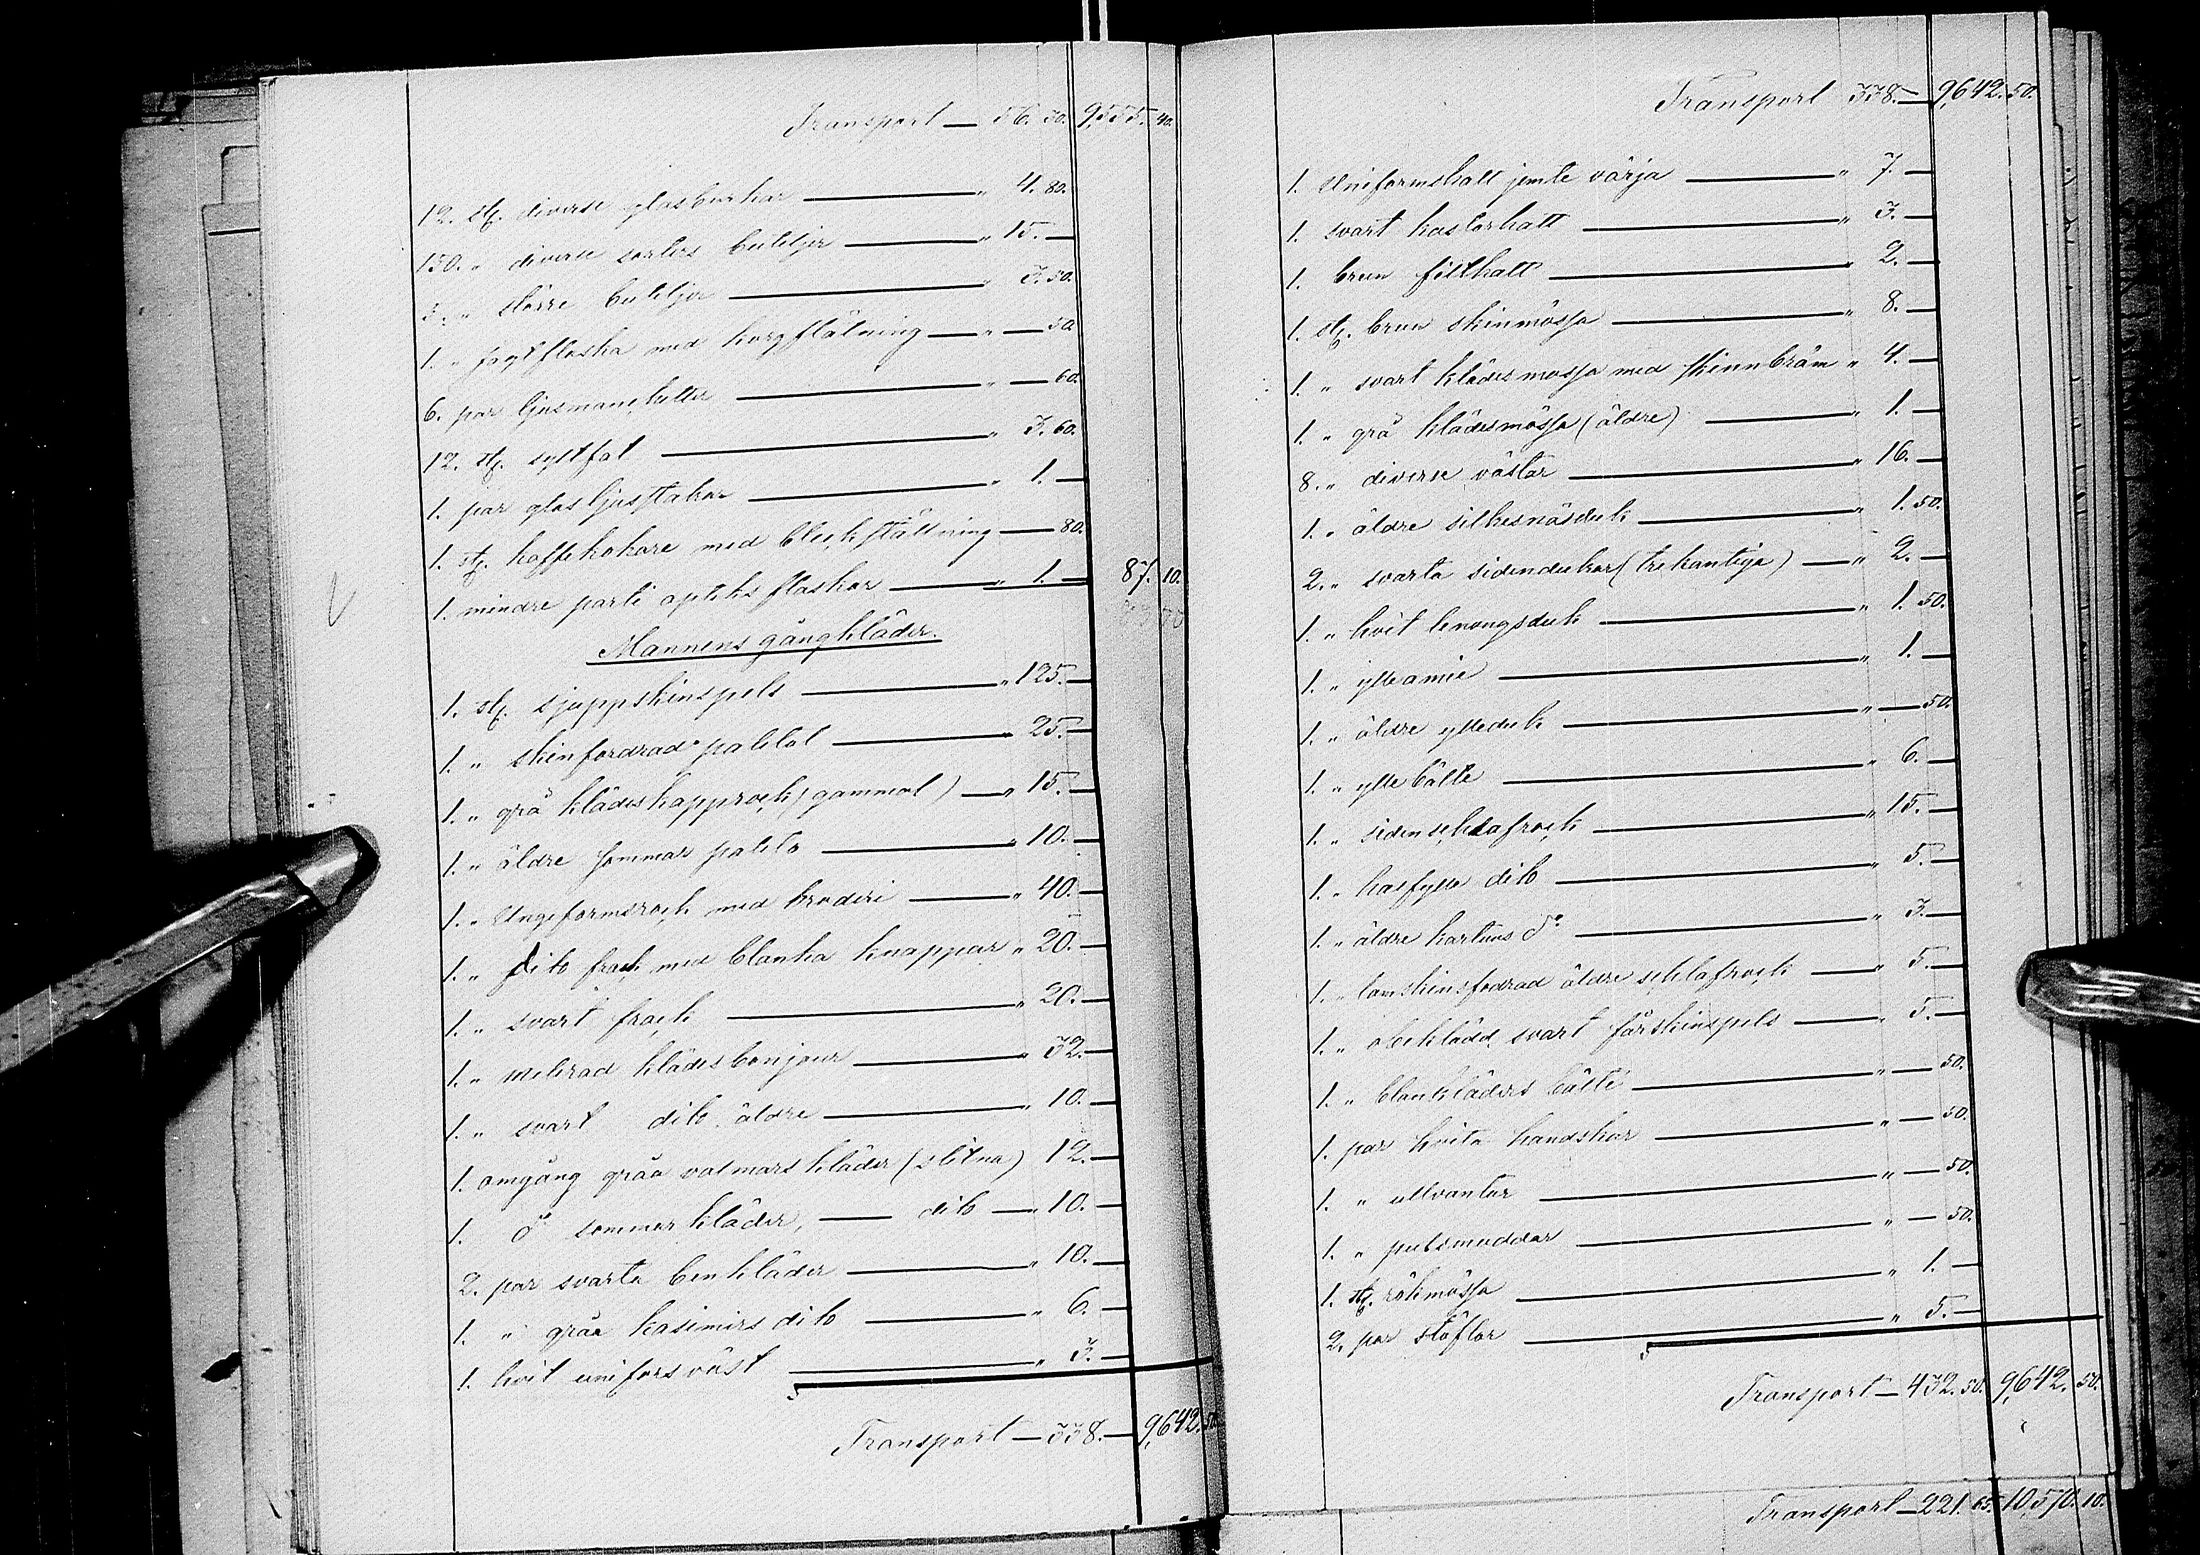 Transport — 56. 30. 9,555. 40.
12. st. diverse glasburkar — " 4. 80.
150. " diverse sorters buteljer — " 15. —
3. " större buteljer — " 3. 50.
1. " jagtflaska med korgflätning — " — 50.
6. par ljusmanchetter — " — 60.
12. st. syltfat — " 3. 60.
1. par glasljusstakar — " 1. —
1. st. kaffekokare med bleckställning — 80.
1. mindre parti apteksflaskor — " 1. — 87. 10.
Mannens gångkläder.
1. st. sjuppskinspels — " 125. —
1. " skinfordrad paletot — " 25. —
1. " grå klädeskapprock (gammal) — " 15. —
1. " äldre sommar palito — " 10. —
1. " Ungeformsrock med broderi — " 40. —
1. " Dito frack med blanka knappar " 20. —
1. " svart frack — " 20. —
1. " melerad klädesbonjour — " 32. —
1. " svart dito äldre — " 10. —
1. omgång gråa valmarskläder (slitna) 12. —
1. d:o sommerkläder, — dito — " 10. —
2. par svarta benkläder — " 10. —
1. " gråa kasimirs dito — " 6. —
1. hvit uniforsväst — " 3. —
Transport — 338. — 9,642. 50.
Transport 338. — 9,642. 50.
1. Uniformshatt jemte värja — " 7. —
1. svart kastorhatt — " 3. —
1. brun filthatt — " 2. —
1. st. brun skinmössa — " 8. —
1. " svart klädesmössa med skinnbräm " 4. —
1. " grå klädesmössa (äldre) — " 1. —
8. " diverse västar — " 16. —
1. " äldre silkesnäsduk — " 1. 50.
2. " svarta sidendukar (trekantiga) — " 2. —
1. " hvit lenongsduk — " 1. 50.
1. " ylleamie — " 1. —
1. " äldre ylleduk — " — 50.
1. " yllebälte — " 6. —
1. " sidenschlafrock — " 15. —
1. " halfylle dito — " 5. —
1. " äldre kartuns d:o — " 3. —
1. " lamskinsfodrad äldre schlafrock — " 5. —
1. " obeklädd svart fårskinspels — " 5. —
1. " blankläders bälte — " — 50.
1. par hvita handskar — " — 50.
1. " ullvantar — " — 50.
1. " pulsmuddar — " — 50.
1. st. rökmössa — " 1. —
2. par stöflor — " 5. —
Transport — 432. 50. 9,642. 50.
Transport — 221. 65. 10,570. 10.